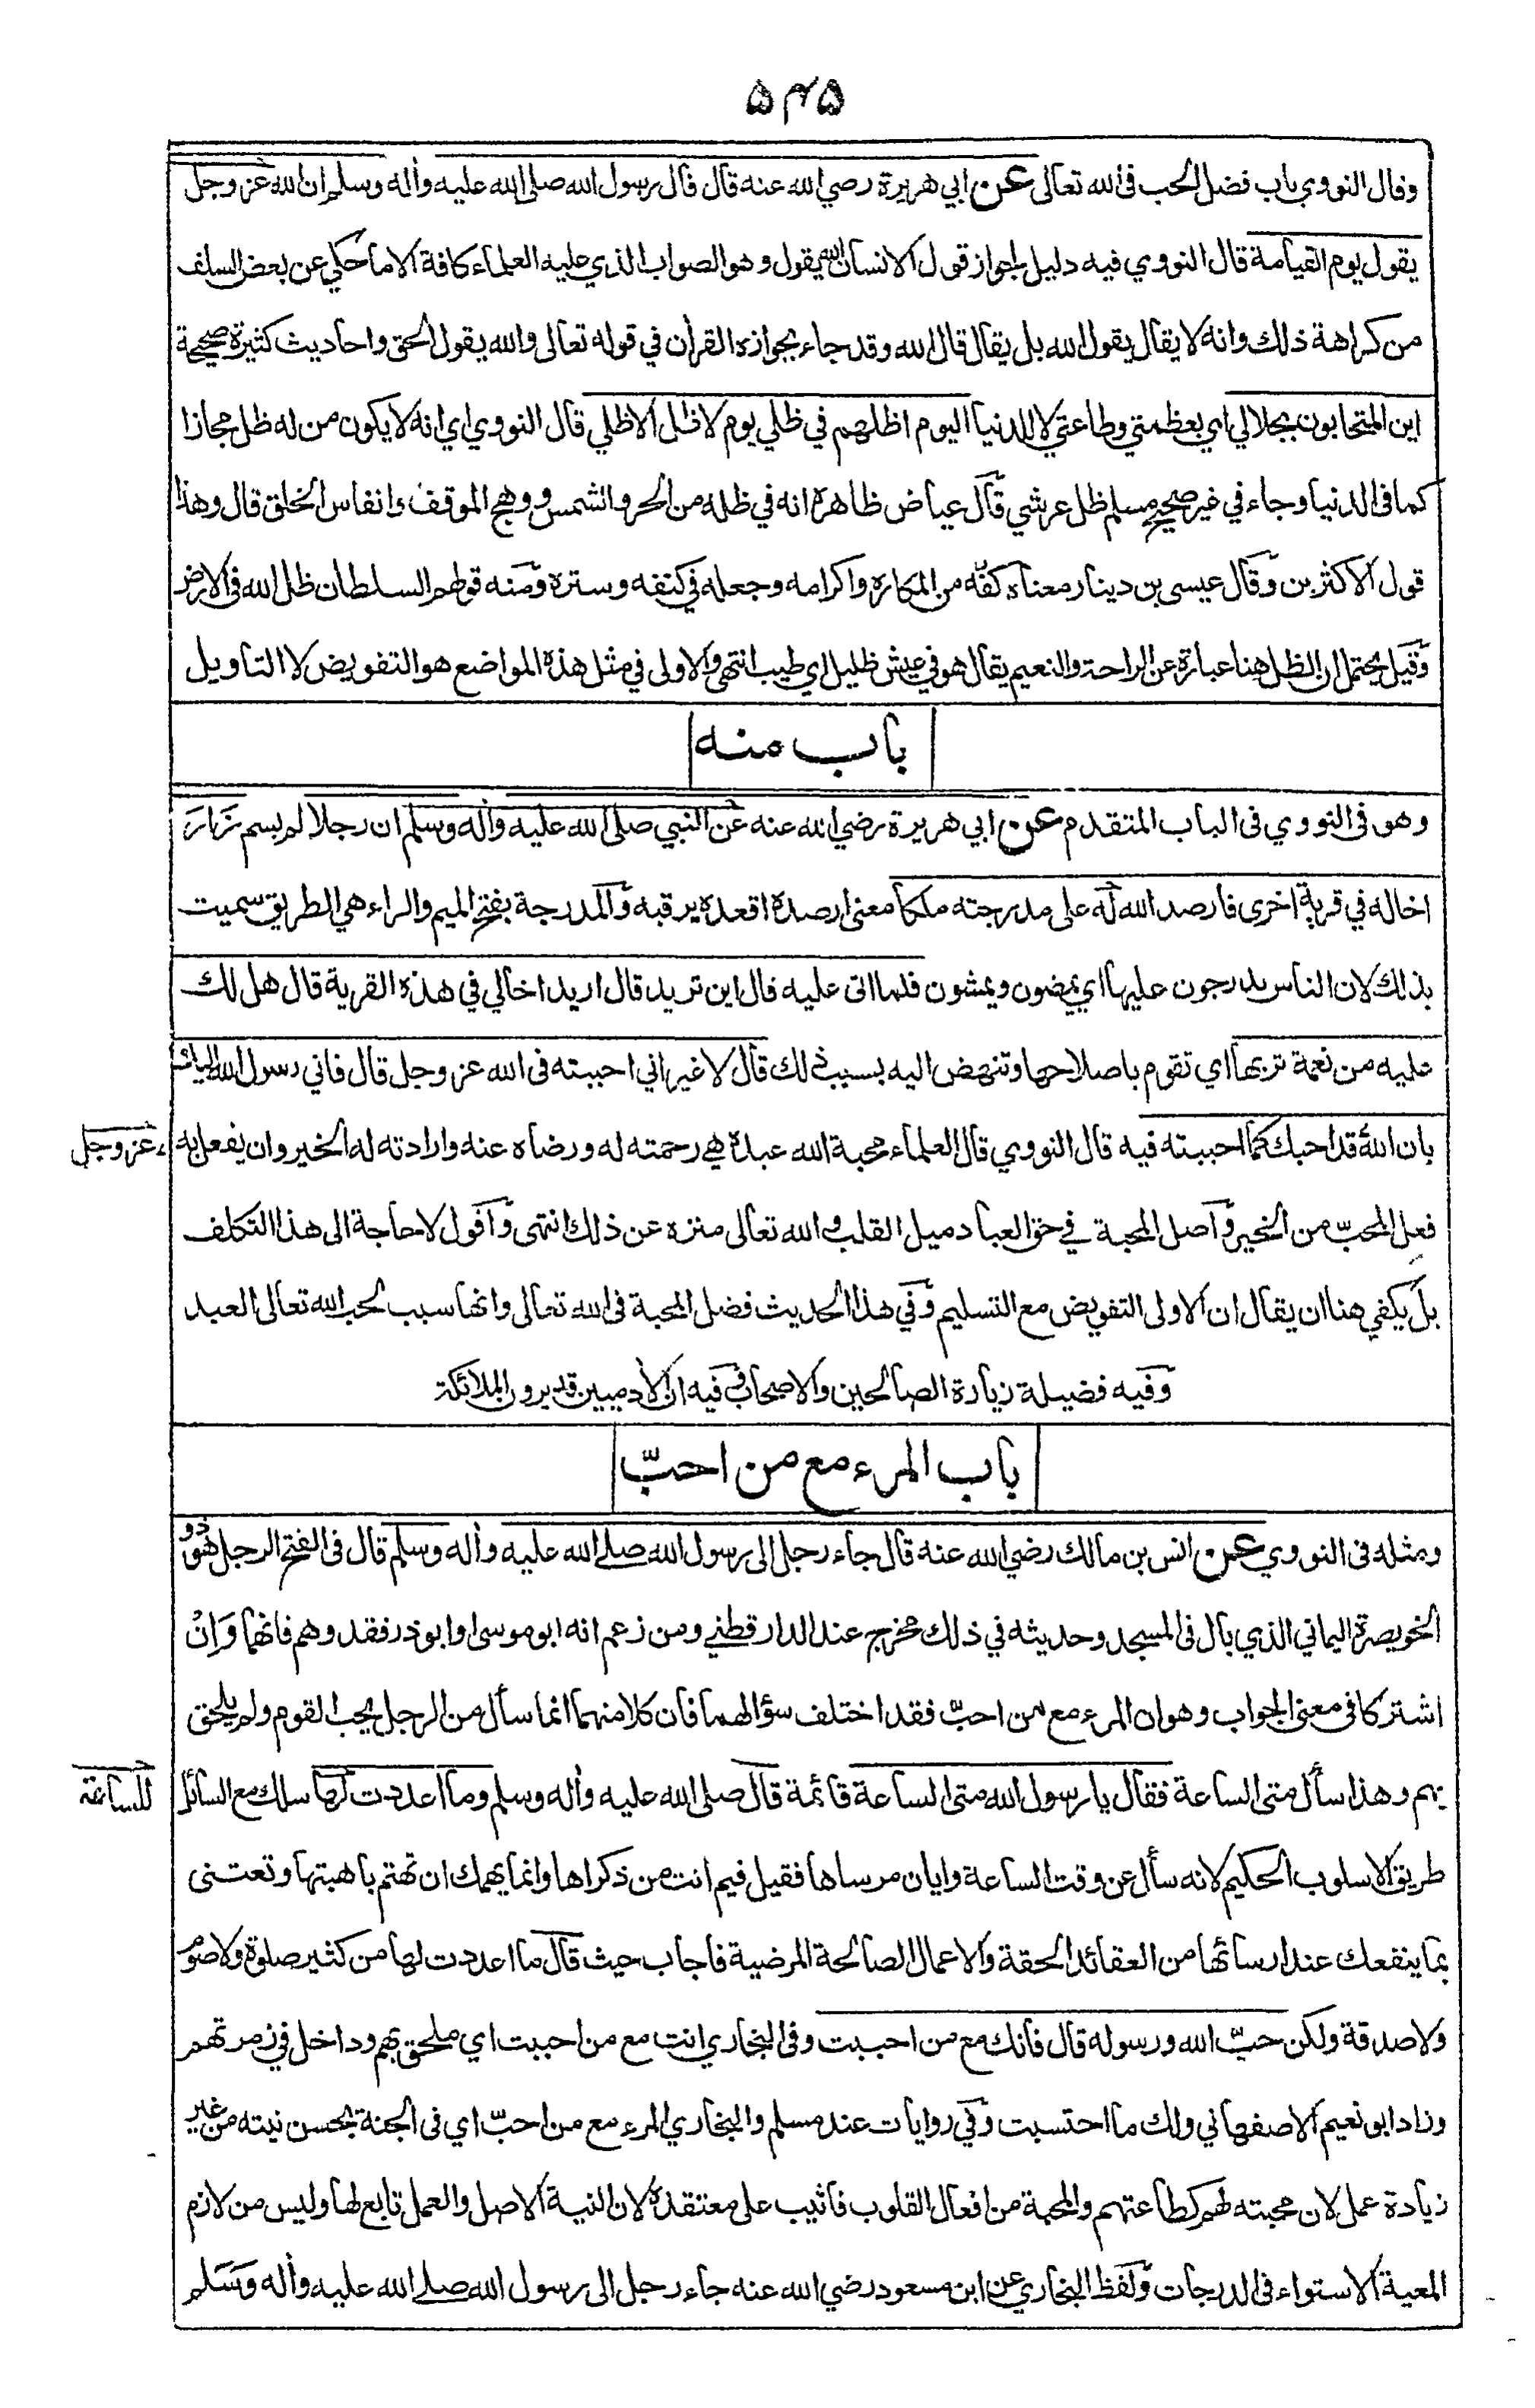 ۵۴۵
وقال النووي باب فضل الحب فى الله تعالى عن ابي هريرة رضي الله عنه قال قال رسول الله صلى الله عليه وأله وسلم ان الله عز وجل
يقول يوم القيامة قال النووي فيه دليل لجواز قول الانسان الله يقول وهو الصواب الذي عليه العلماء كافة الا ما حكي عن بعض السلف
من كراهة ذلك وانه لا يقال يقول الله بل يقال قال الله وقد جاء بجوازه القرأن في قوله تعالى والله يقول الحق واحاديث كثيرة صحيحة
اين المتحابون بجلالي اي بعظمتي وطاعتي لا للدنيا اليوم اظلهم في ظلي يوم لا ظل الا ظلي قال النووي اي انه لا يكون من له ظل مجازا
كما فى الدنيا وجاء في غير صحيح مسلم ظل عرشي قال عياض ظاهره انه في ظله من الحر والشمس ووهج الموقف وانفاس الخلق قال وهذا
قول الاكثرين وقال عيسى بن دينار معناه كفه من المكاره واكرامه وجعله في كنفه وستره ومنه قولهم السلطان ظل الله فى الارض
وقيل يحتمل ان الظل هنا عبارة عن الراحة والنعيم يقال هو في عيش ظليل اي طيب انتهى والاولى في مثل هذه المواضع هو التفويض لا التاويل
باب منه
وهو فى النووي فى الباب المتقدم عن ابي هريرة رضي الله عنه عن النبي صلى الله عليه وأله وسلم ان رجلا لم يسم زَارَ
اخا له في قرية اخرى فارصد الله له على مدرجته ملكا معنى ارصده اقعده يرقبه والمدرجة بفتح الميم والراء هي الطريق سميت
بذلك لان الناس يدرجون عليها اي يمضون ويمشون فلما اتى عليه قال اين تريد قال اريد اخا لي في هذه القرية قال هل لك
عليه من نعمة تربها اي تقوم باصلاحها وتنهض اليه بسبب ذلك قال لا غير اني احببته فى الله عز وجل قال فاني رسول الله اليك
بان الله قد احبك كما احببته فيه قال النووي قال العلماء محبة الله عبده هي رحمته له ورضاه عنه وارادته له الخير وان يفعل به ، عز وجل
فعل المحبّ من الخير واصل المحبة في حق العباد ميل القلب والله تعالى منزه عن ذلك انتهى واقول لا حاجة الى هذا التكلف
بل يكفي هنا ان يقال ان الاولى التفويض مع التسليم وفي هذا الحديث فضل المحبة فى الله تعالى وانها سبب لحب الله تعالى العبد
وفيه فضيلة زيارة الصالحين والاصحاب وفيه ان الأدميين قد يرون الملائكة
باب المرء مع من احبّ
ومثله فى النووي عن انس بن مالك رضي الله عنه قال جاء رجل الى رسول الله صلى الله عليه وأله وسلم قال فى الفتح الرجل هو ذو
الخويصرة اليماني الذي بال فى المسجد وحديثه في ذلك مخرج عند الدارقطني ومن زعم انه ابو موسى او ابو ذر فقد وهم فانهما وَاِنْ
اشتركا فى معنى الجواب وهو ان المرء مع من احبّ فقد اختلف سؤالهما فان كلا منهما انما سأل من الرجل يحب القوم ولم يلحق
بهم وهذا سأل متى الساعة فقال يا رسول الله متى الساعة قائمة قال صلى الله عليه وأله وسلم وما اعددت لها سلك مع السائل للساعة
طريق الاسلوب الحكيم لانه سأل عن وقت الساعة وايان مرساها فقيل فيم انت من ذكراها وانما يهمك ان تهتم باهبتها وتعتنى
بما ينفعك عند ارسائها من العقائد الحقة والاعمال الصالحة المرضية فاجاب حيث قال ما اعددت لها من كثير صلوة ولا صوم
ولا صدقة ولكن حبّ الله ورسوله قال فانك مع من احببت وفى البخاري انت مع من احببت اي ملحق بهم وداخل في زمرتهم
وزاد ابو نعيم الاصفهاني ولك ما احتسبت وفي روايات عند مسلم والبخاري المرء مع من احبّ اي فى الجنة بحسن نيته من غير
زيادة عمل لان محبته لهم كطاعتهم والمحبة من افعال القلوب فاثيب على معتقده لان النية الاصل والعمل تابع لها وليس من لازم
المعية الاستواء فى الدرجات ولفظ البخاري عن ابن مسعود رضي الله عنه جاء رجل الى رسول الله صلى الله عليه وأله وَسَلم